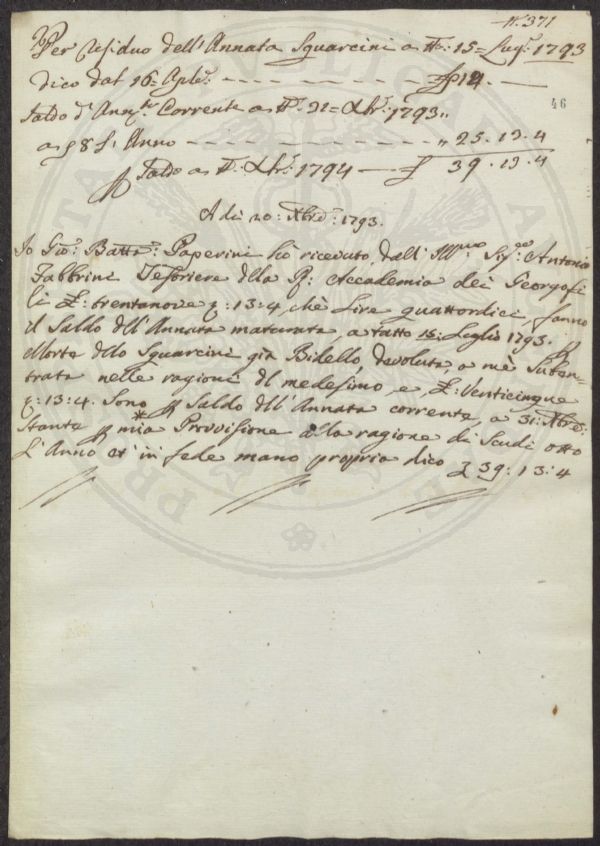 N. 371
Per residuo dell'Annata Squarcini a tt.º 15= Lug.º 1793
dico dal 16= Aple. - - - - - - - - - 14. —
46
Saldo d'Corrente a tt.º 31= Xbr.e 1793
a 8 l'Anno - - - - - - - - - " 25. 13. 4
Saldo a tt.º Xbr.e 1794 — £ 39. 13. 4
A dì 20: Xbre: 1793.
Io Gio: Batta: Paperini hò ricevuto dall' Ill.mo Sig.re Antonio
Fabbrini Tesoriere della R: Accademia dei Georgofi
li £: trentanove : 13:4, chè Lire quattordici, sanno
il Saldo dll'Annata maturata, a tutto 15: Luglio 1793. p
Morte dllo Squarcini già Bidello devoluta, a mè Suben=
trato nelle ragioni dl medesimo, e £: Venticinque
: 13:4. Sono p Saldo dll'Annata corrente, a 31: Xbre:
Stante p mia Provvisione alla ragione di Scudi otto
l'Anno et in fede mano propria dico £ 39: 13: 4